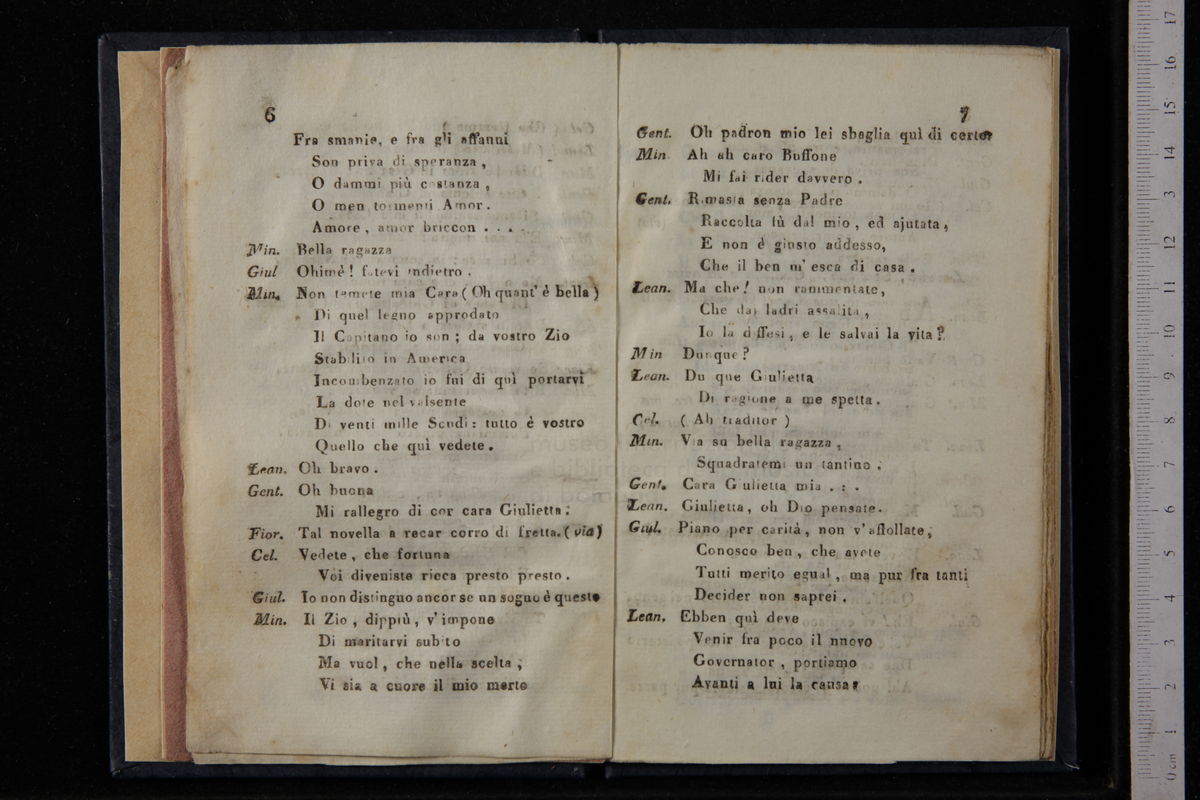 6
Fra smanie, e fra gli affanni
Son priva di speranza,
O dammi più costanza,
O men tormenti Amor.
Amore, amor briccon . . . .
Min. Bella ragazza
Giul Ohimè! fatevi indietro.
Min. Non temete mia Cara (Oh quant' è bella)
Di quel legno approdato
Il Capitano io son; da vostro Zio
Stabilito in America
Incombenzato io fui di quì portarvi
La dote nel valsente
Di venti mille Scudi: tutto è vostro
Quello che quì vedete.
Lean. Oh bravo.
Gent. Oh buona
Mi rallegro di cor cara Giulietta.
Fior. Tal novella a recar corro di fretta. (via)
Cel. Vedete, che fortuna
Voi diveniste ricca presto presto.
Giul. Io non distinguo ancor se un sogno è questo
Min. Il Zio, dippiù, v'impone
Di maritarvi subito
Ma vuol, che nella scelta,
Vi sia a cuore il mio merto
7
Gent. Oh padron mio lei sbaglia quì di certo
Min Ah ah caro Buffone
Mi fai rider davvero.
Gent. Rimasta senza Padre
Raccolta fù dal mio, ed ajutata,
E non è giusto addesso,
Che il ben m'esca di casa.
Lean. Ma che! non rammentate,
Che dai ladri assalita,
Io la diffesi, e le salvai la vita?
Min Dunque?
Lean. Dunque Giulietta
Di ragione a me spetta.
Cel. (Ah traditor)
Min. Via su bella ragazza,
Squadratemi un tantino.
Gent. Cara Giulietta mia . : .
Lean. Giulietta, oh Dio pensate.
Giul. Piano per carità, non v'affollate,
Conosco ben, che avete
Tutti merito egual, ma pur fra tanti
Decider non saprei.
Lean. Ebben quì deve
Venir fra poco il nuovo
Governator, portiamo
Avanti a lui la causa